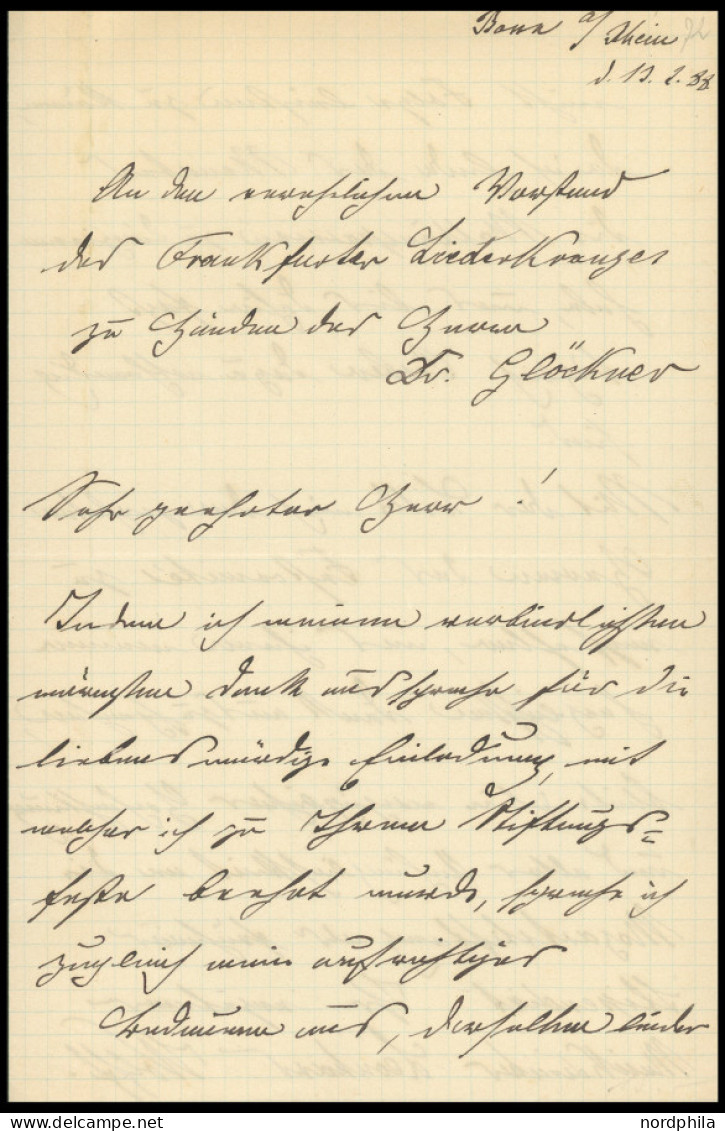 Bonn a/Rhein 72
d. 13. 2. 88
An den verehrlichen Vorstand
des Frankfurter Liederkranzes
zu Händen des Herrn
Dr. Glöckner
Sehr geehrter Herr!
Indem ich meinen verbindlichsten
wärmsten Dank ausspreche für die
liebenswürdige Einladung, mit
welcher ich zu Ihrem Stiftungs=
feste beehrt wurde, spreche ich
zugleich mein aufrichtiges
Bedauern aus, derselben leider
nordphila